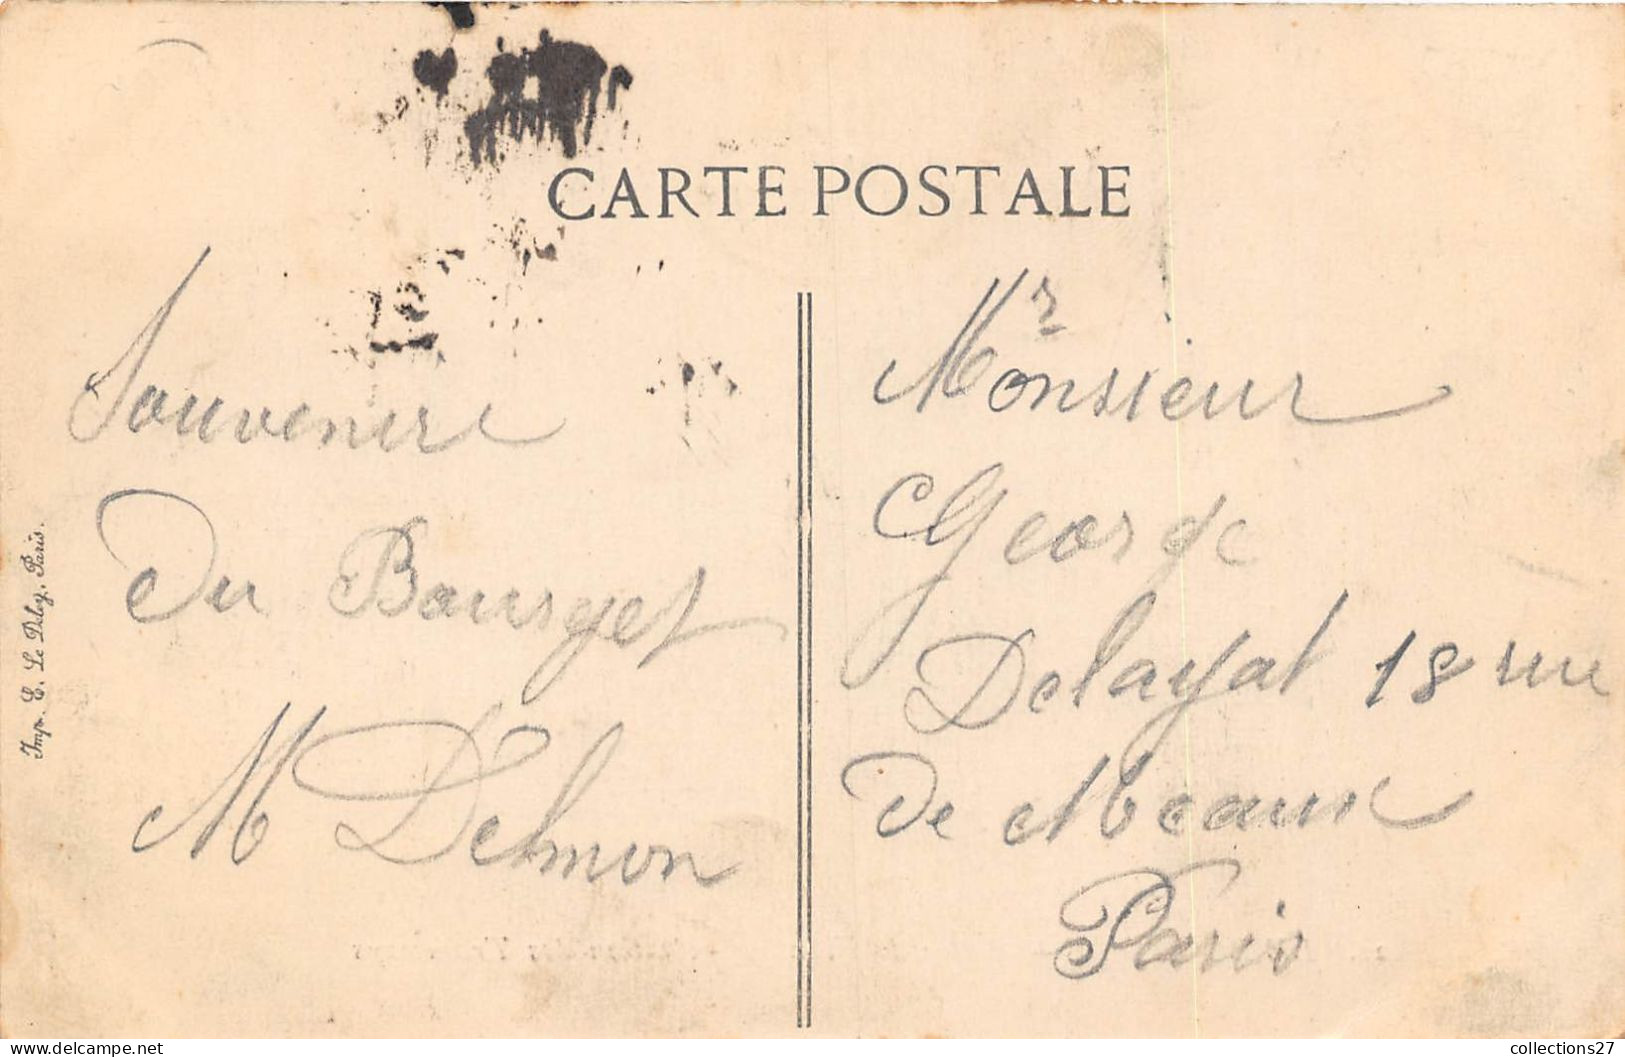 CARTE POSTALE
Souvenir
Du Bourget
M Delmon
Mr
Monsieur
George
Delayat 18 rue
De Meaux
Paris
Imp. E. Le Deley, Paris.
collections27